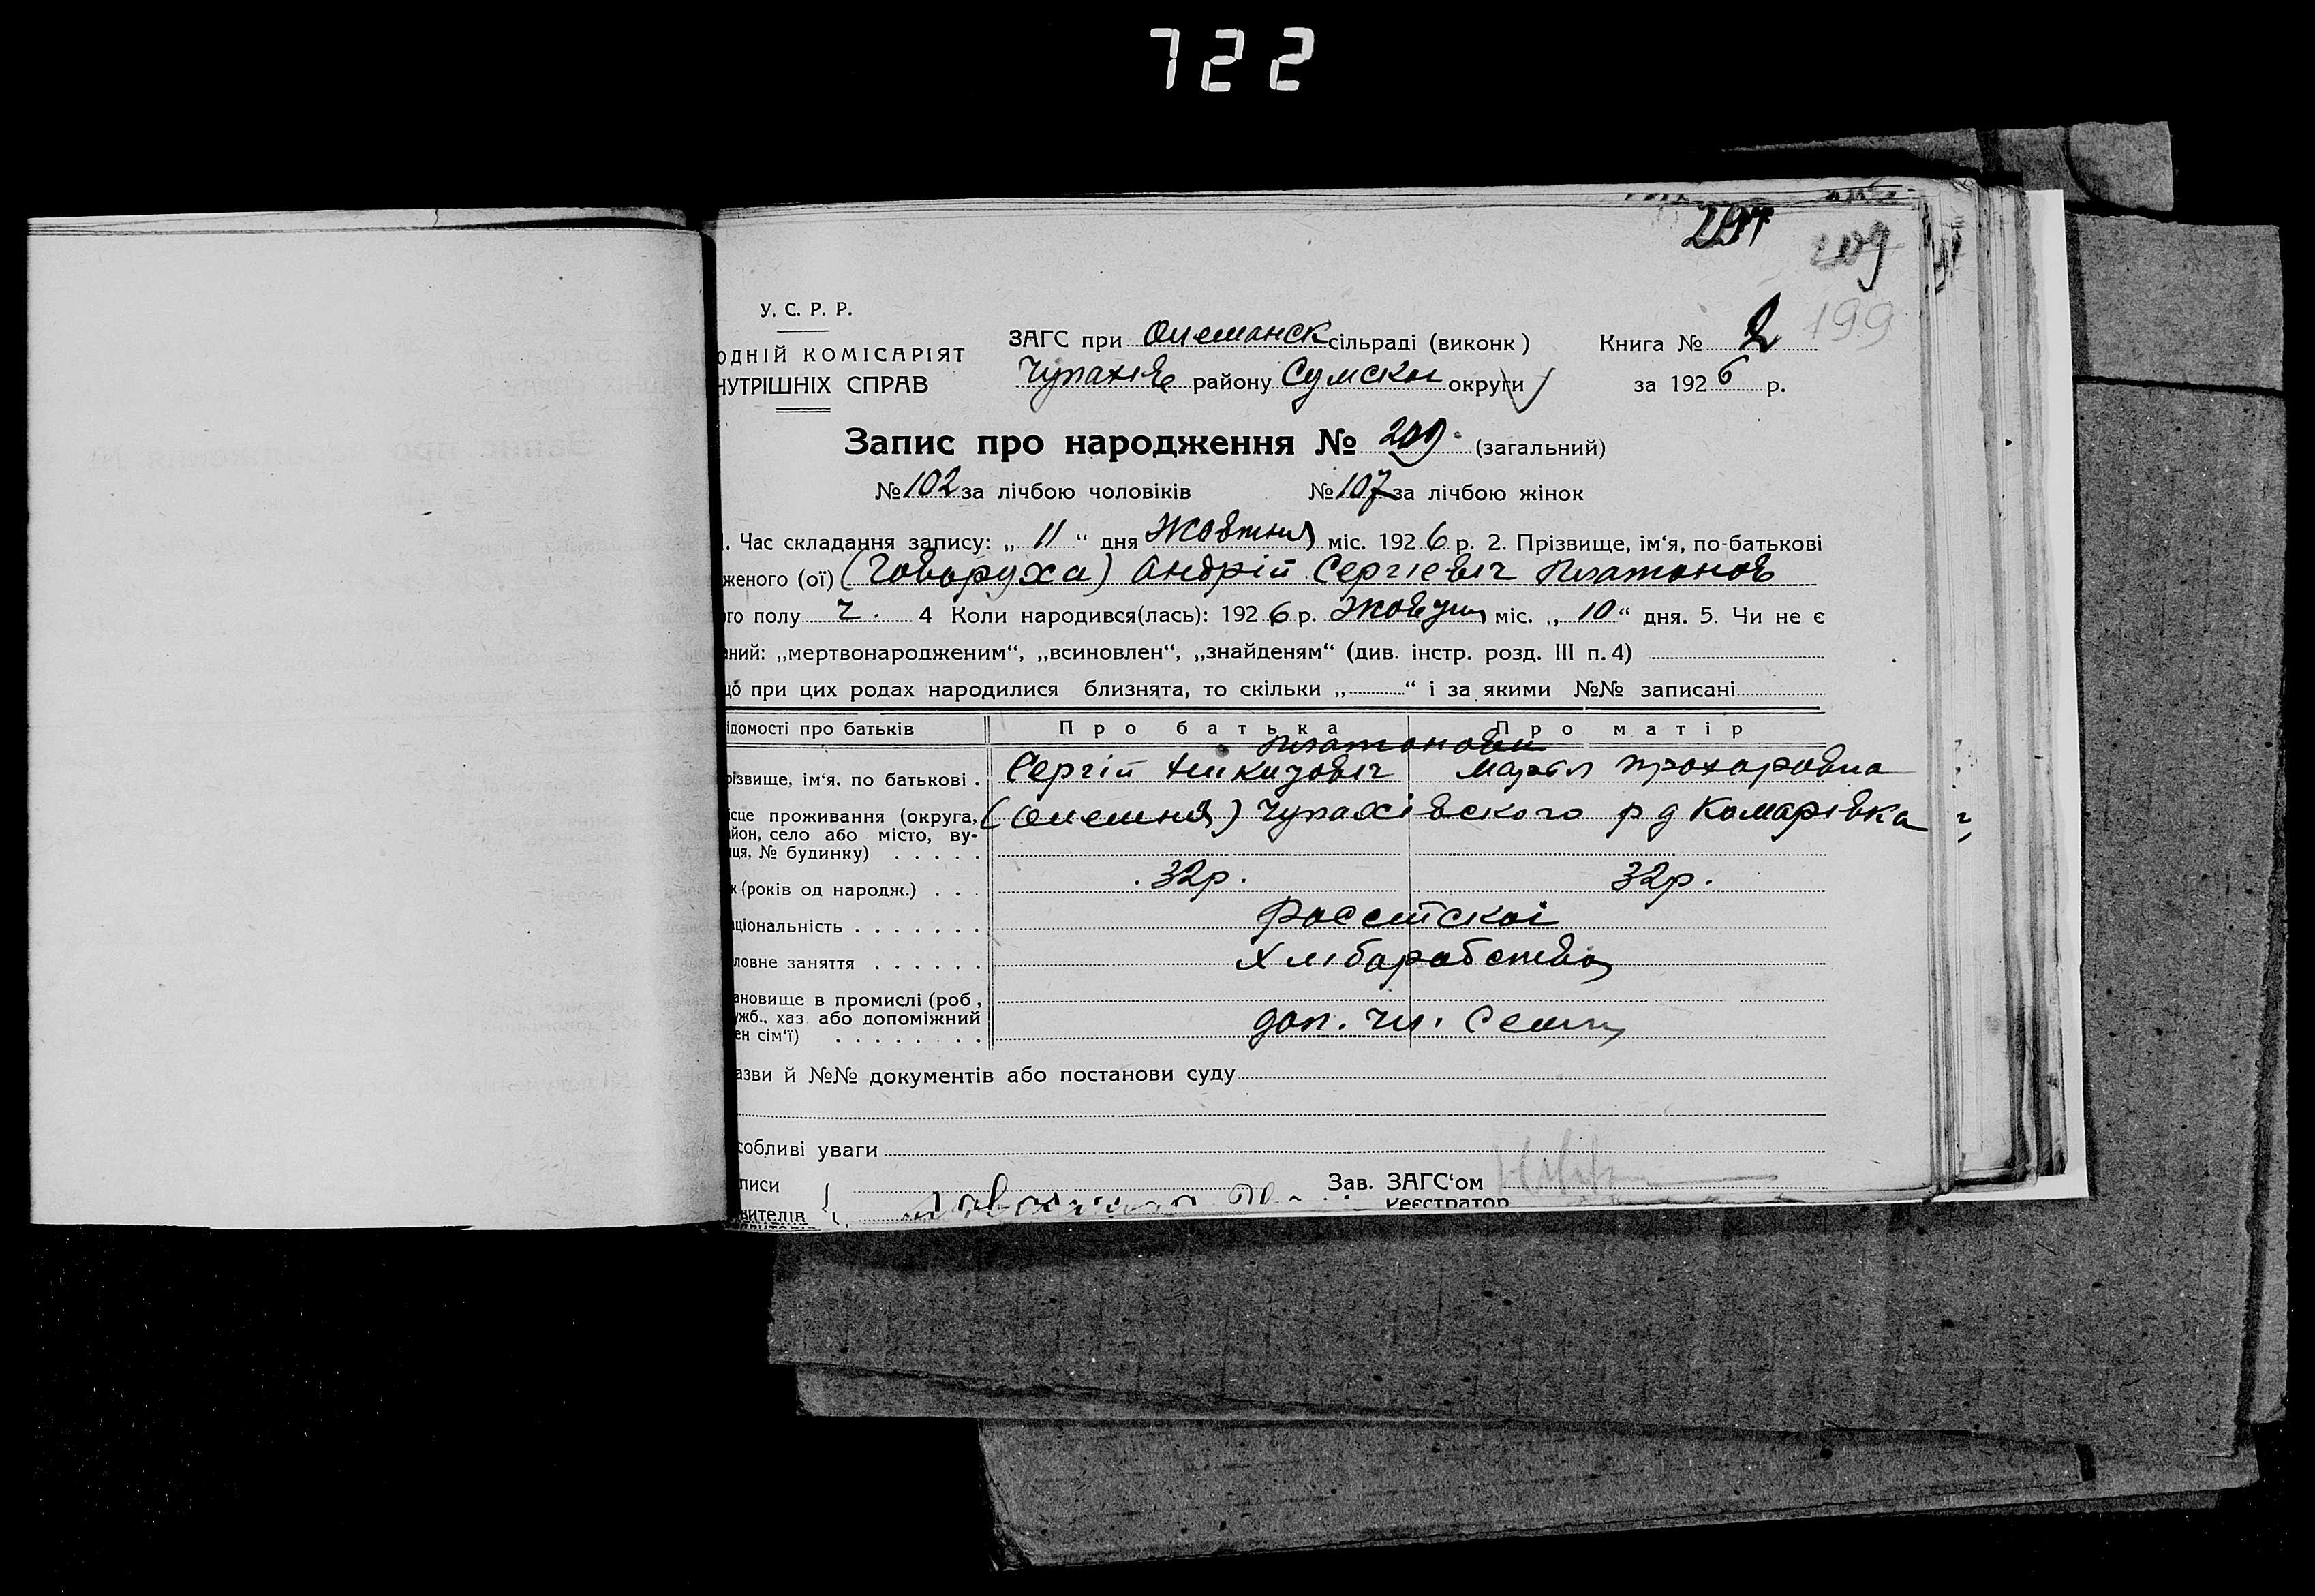 722
209
199
У. С. Р. Р.
ОДНІЙ КОМІСАРІЯТ
НУТРІШНІХ СПРАВ
ЗАГС при Олешанск сільраді (виконк)
Чупахів району Сумскої округи
Книга № 2
за 1926 р.
Запис про народження № 209. (загальний)
№ 102 за лічбою чоловіків № 107 за лічбою жінок
1. Час складання запису: „ 11 “ дня Жовтня міс. 1926 р. 2. Прізвище, ім‘я, по-батькові
женого (ої) (Говоруха) Андрій Сергієвіч Платонов
го полу ч. 4 Коли народився(лась): 1926 р. міс. „ 10 “ дня. 5. Чи не є
аний: „мертвонародженим“, „всиновлен“, „знайденям“ (див. інстр. розд. III п. 4)
що при цих родах народилися близнята, то скільки „ “ і за якими №№ записані
ідомості про батьків Про батька Про матір
Платонови
різвище, ім‘я, по батькові . Сергій Никитовіч Марья Прохоровна
ісце проживання (округа, (Олешня) Чупахівского р д Комарівка
йон, село або місто, ву-
иця, № будинку) . . . . .
к (років од народж.) . . . 32р. 32р.
аціональність . . . . . . . Российскої
ловне заняття . . . . . . Хліборобство
ановище в промислі (роб.,
ужб., хаз. або допоміжний
ен сім‘ї) . . . . . . . . доп. чл. Семи
азви й №№ документів або постанови суду
собливі уваги
писи
Зав. ЗАГС‘ом
вителів
Реєстратор